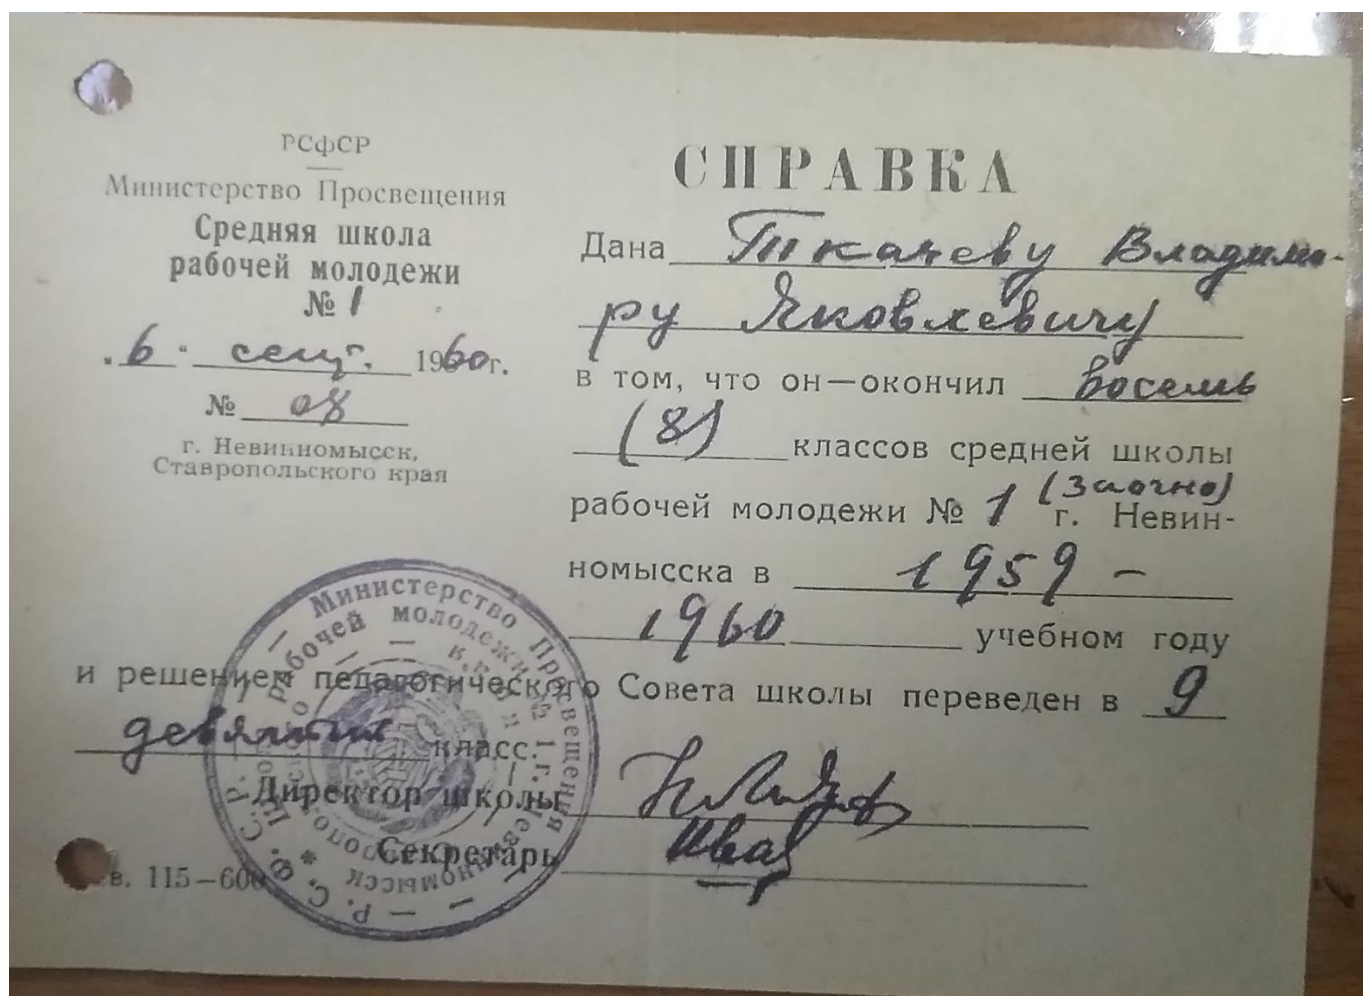 РСФСР
Министерство Просвещения
Средняя школа
рабочей молодежи
№ 1
"6" сент. 1960 г.
№ 08
г. Невинномысск,
Ставропольского края
СПРАВКА
Дана Ткачеву Владими-
ру Яковлевичу
в том, что он—окончил восемь
(8) классов средней школы
(заочно)
рабочей молодежи № 1 г. Невин-
номысска в 1959 –
1960 учебном году
и решением педагогического Совета школы переведен в 9
девятый класс.
Директор школы
Секретарь
115—600
— Министерство Просвещения — Р. С. Ф. С. Р.
рабочей молодежи № 1 г. Невинномысск